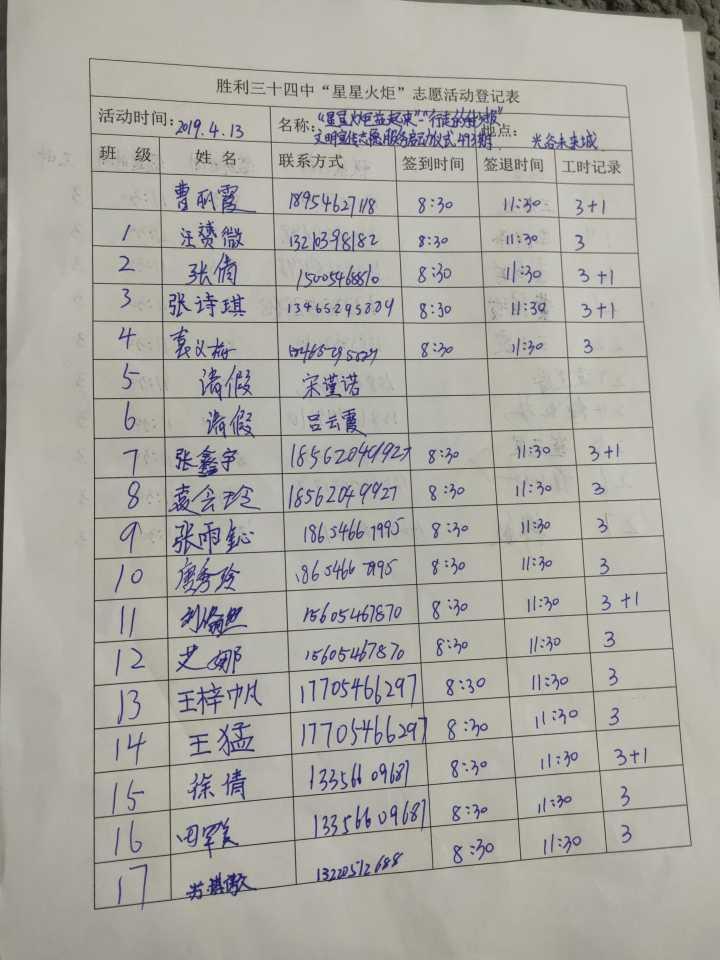 胜利三十四中“星星火炬”志愿活动登记表
活动时间：2019.4.13 名称：“星星火炬益起来”“行走的 文明宣传志愿服务启动仪式493期 地点： 光谷未来城
班 级 姓 名 联系方式 签到时间 签退时间 工时记录
曹丽霞 18954627118 8:30 11:30 3+1
1 汪赟微 13210398182 8:30 11:30 3
2 张倩 15005468810 8:30 11:30 3+1
3 张诗琪 13465295827 8:30 11:30 3+1
4 袁义梅 13465295827 8:30 11:30 3
5 请假 宋谨诺
6 请假 吕云霞
7 张鑫宇 18562049927 8:30 11:30 3+1
8 袁会玲 18562049927 8:30 11:30 3
9 张雨 18654667995 8:30 11:30 3
10 唐秀玲 18654667995 8:30 11:30 3
11 15605467870 8:30 11:30 3+1
12 艾娜 15605467870 8:30 11:30 3
13 王梓帆 17705466297 8:30 11:30 3
14 王猛 17705466297 8:30 11:30 3
15 徐倩 13356609687 8:30 11:30 3+1
16 13356609687 8:30 11:30 3
17 13220512688 8:30 11:30 3